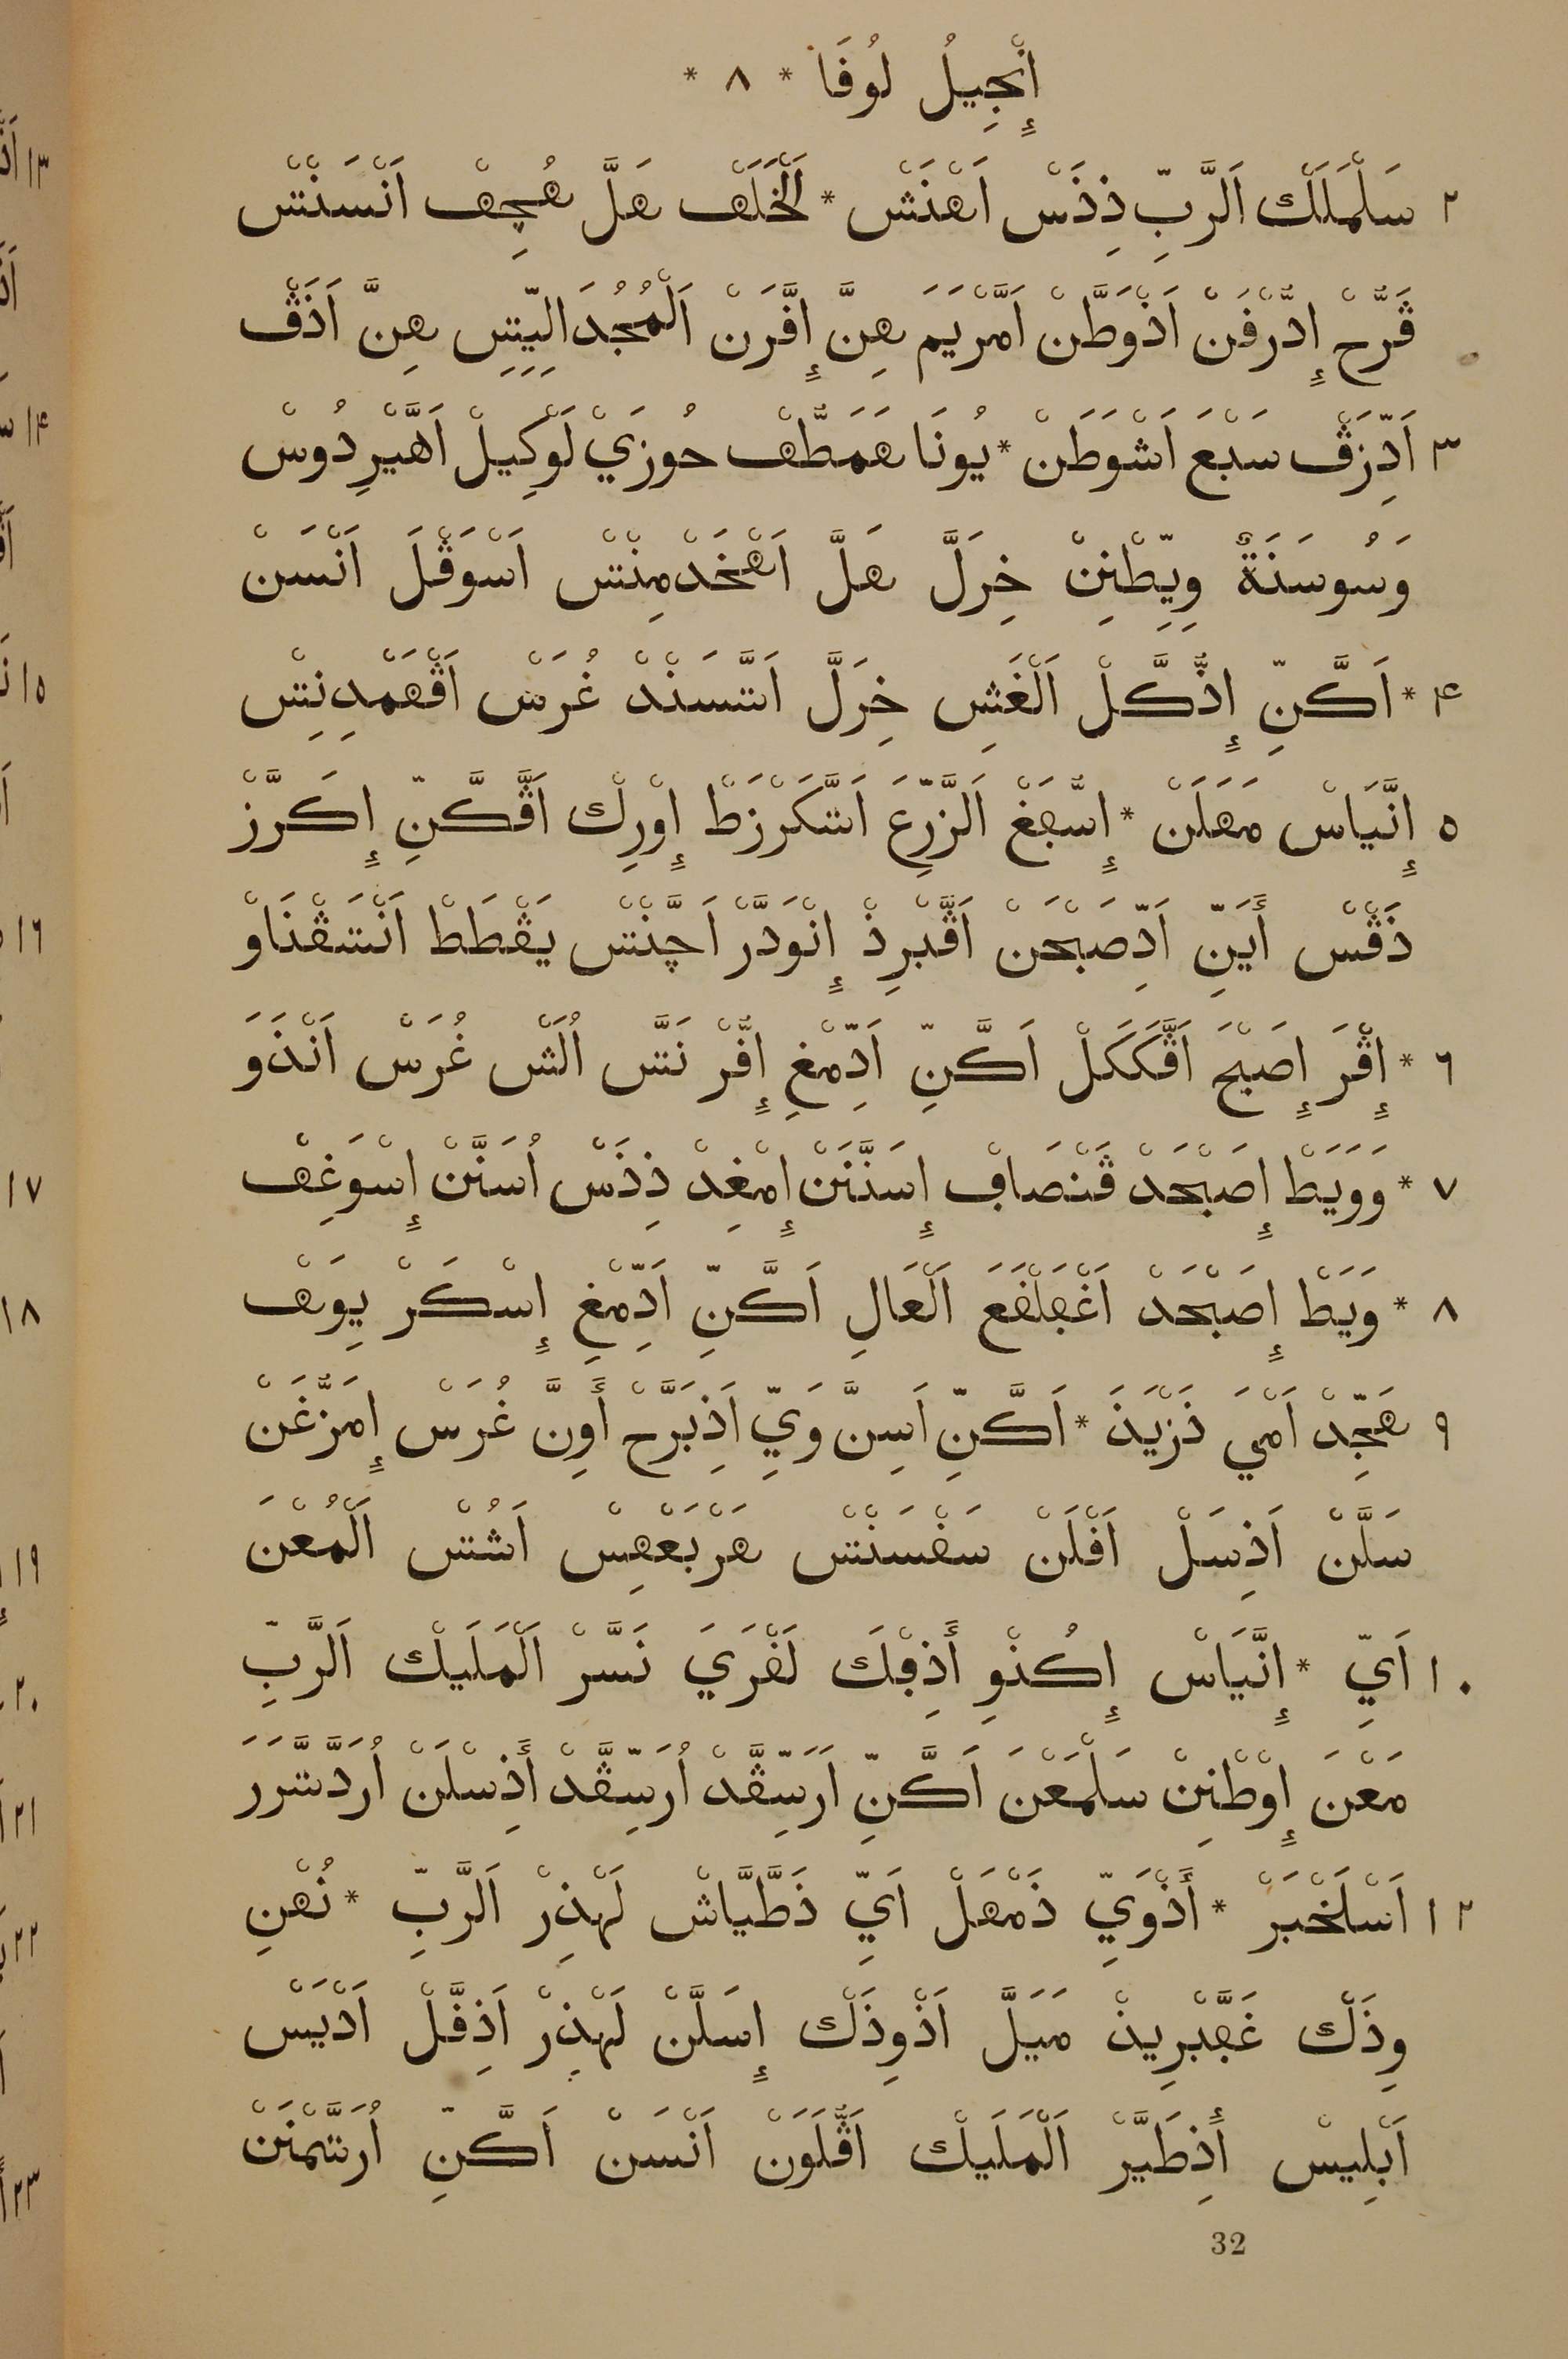 إِنْجِيلُ لُوقَا * ٨ *
٢ سَلْمَلَكْ اَلرَّبِّ ذِذَسْ اَهْنَشْ * اَلْخَلَهْ هَلَّ هُجِهْ اَنْسَنْتْسْ
ڤَرَّحْ إِدُّرْفَنْ اَذْوَطَّنْ اَمَّرْيَمَ هِنَّ إِقَّرَنْ اَلْمُجُدَالِيِّتِسِ هِنَّ اَذَڤْ
٣ اَدِّزَڤْ سَبْعَ اَشْوَطَنْ * يُونَا هَمَطُّهْ حُوزَيْ لَوْكِيلْ اَهَّيْرِدُوسْ
وَسُوسَنَةٌ وِيِّطْنِنْ خِرَلَّ هَلَّ اَهْخَدْمِنْتْسْ اَسْوَڤْلَ اَنْسَنْ
۴ * اَكَّنِّ إِذُّكَّلْ اَلْغَشِ خِرَلَّ اَتَّسَنْدْ غُرَسْ اَڤْهَمْدِنِتْسْ
٥ إِنَّيَاسْ مَهَلَنْ * إِسُّهَغْ اَلزَّرِّعَ اَتَّكَرْزَطْ إِوْرِكْ اَڤَّكَّنِّ إِكَرَّزْ
ذَڤْسْ أَيَنِّ اَدِّصَبْحَنْ اَڤَّبْرِذْ إِنْوَدَّرْ اَچَّنْتْسْ يَڤْطَطْ اَنْتْسَڤْنَاوْ
٦ * إِڤْرَ إِصَبْحَ اَڤَّكَكَلْ اَكَّنِّ اَدِّمْغِ إِقُّرْ نَتَّسْ اُلَشْ غُرَسْ اَنْذَوَ
٧ * وَوَيَطْ إِصَبْحَدْ ڤَنْصَافْ إِسَنَّنَنْ إِمْغِدْ ذِذَسْ اُسَنَّنْ إِسْوَغِهْ
٨ * وَيَطْ إِصَبْحَدْ اَغْهَلْفَعَ اَلْعَالِ اَكَّنِّ اَدِّمْغِ إِسْكَرْ يِوَهْ
٩ هَجِّدْ اَمْيَ ذَزْيَدَ * اَكَّنِّ اَسِنَّ وَيِّ اَذِبَرَّحْ أَوِنَّ غُرَسْ إِمَزُّغَنْ
سَلَّنْ اَذِسَلْ اَفْلَنْ سَفْسَنْتْسْ هَرْبَعْهِسْ اَشُتْسْ اَلْمُعْنَ
١٠ اَيِّ * إِنَّيَاسْ إِكُنْوِ أَذِفْكَ لَفْرَيَ نَسَّرْ اَلْمَلَيْكْ اَلرَّبِّ
مَعْنَ إِوْطْنِنْ سَلْمَعْنَ اَكَّنِّ اَرَسِّڤَّدْ اُرَسِّڤَّدْ أَذِسْلَنْ اُرَدَّتَّرَرَ
١٢ اَسْلَخْبَرْ * أَذْوَيِّ ذَمْهَلْ اَيِّ ذَطَّيَّاشْ لَهْذِرْ اَلرَّبِّ * نُهْنِ
وِذَكْ غَهَّبْرِيذْ مَيَلَّ اَذْوِذَكْ إِسَلَّنْ لَهْذِرْ اَذِفَّلْ اَدْيَسْ
اَبْلِيسْ أَذِطَيَّرْ اَلْمَلَيْكْ اَڤُّلَوَنْ اَنْسَنْ اَكَّنِّ اُرَتَّمْنَنْ
32